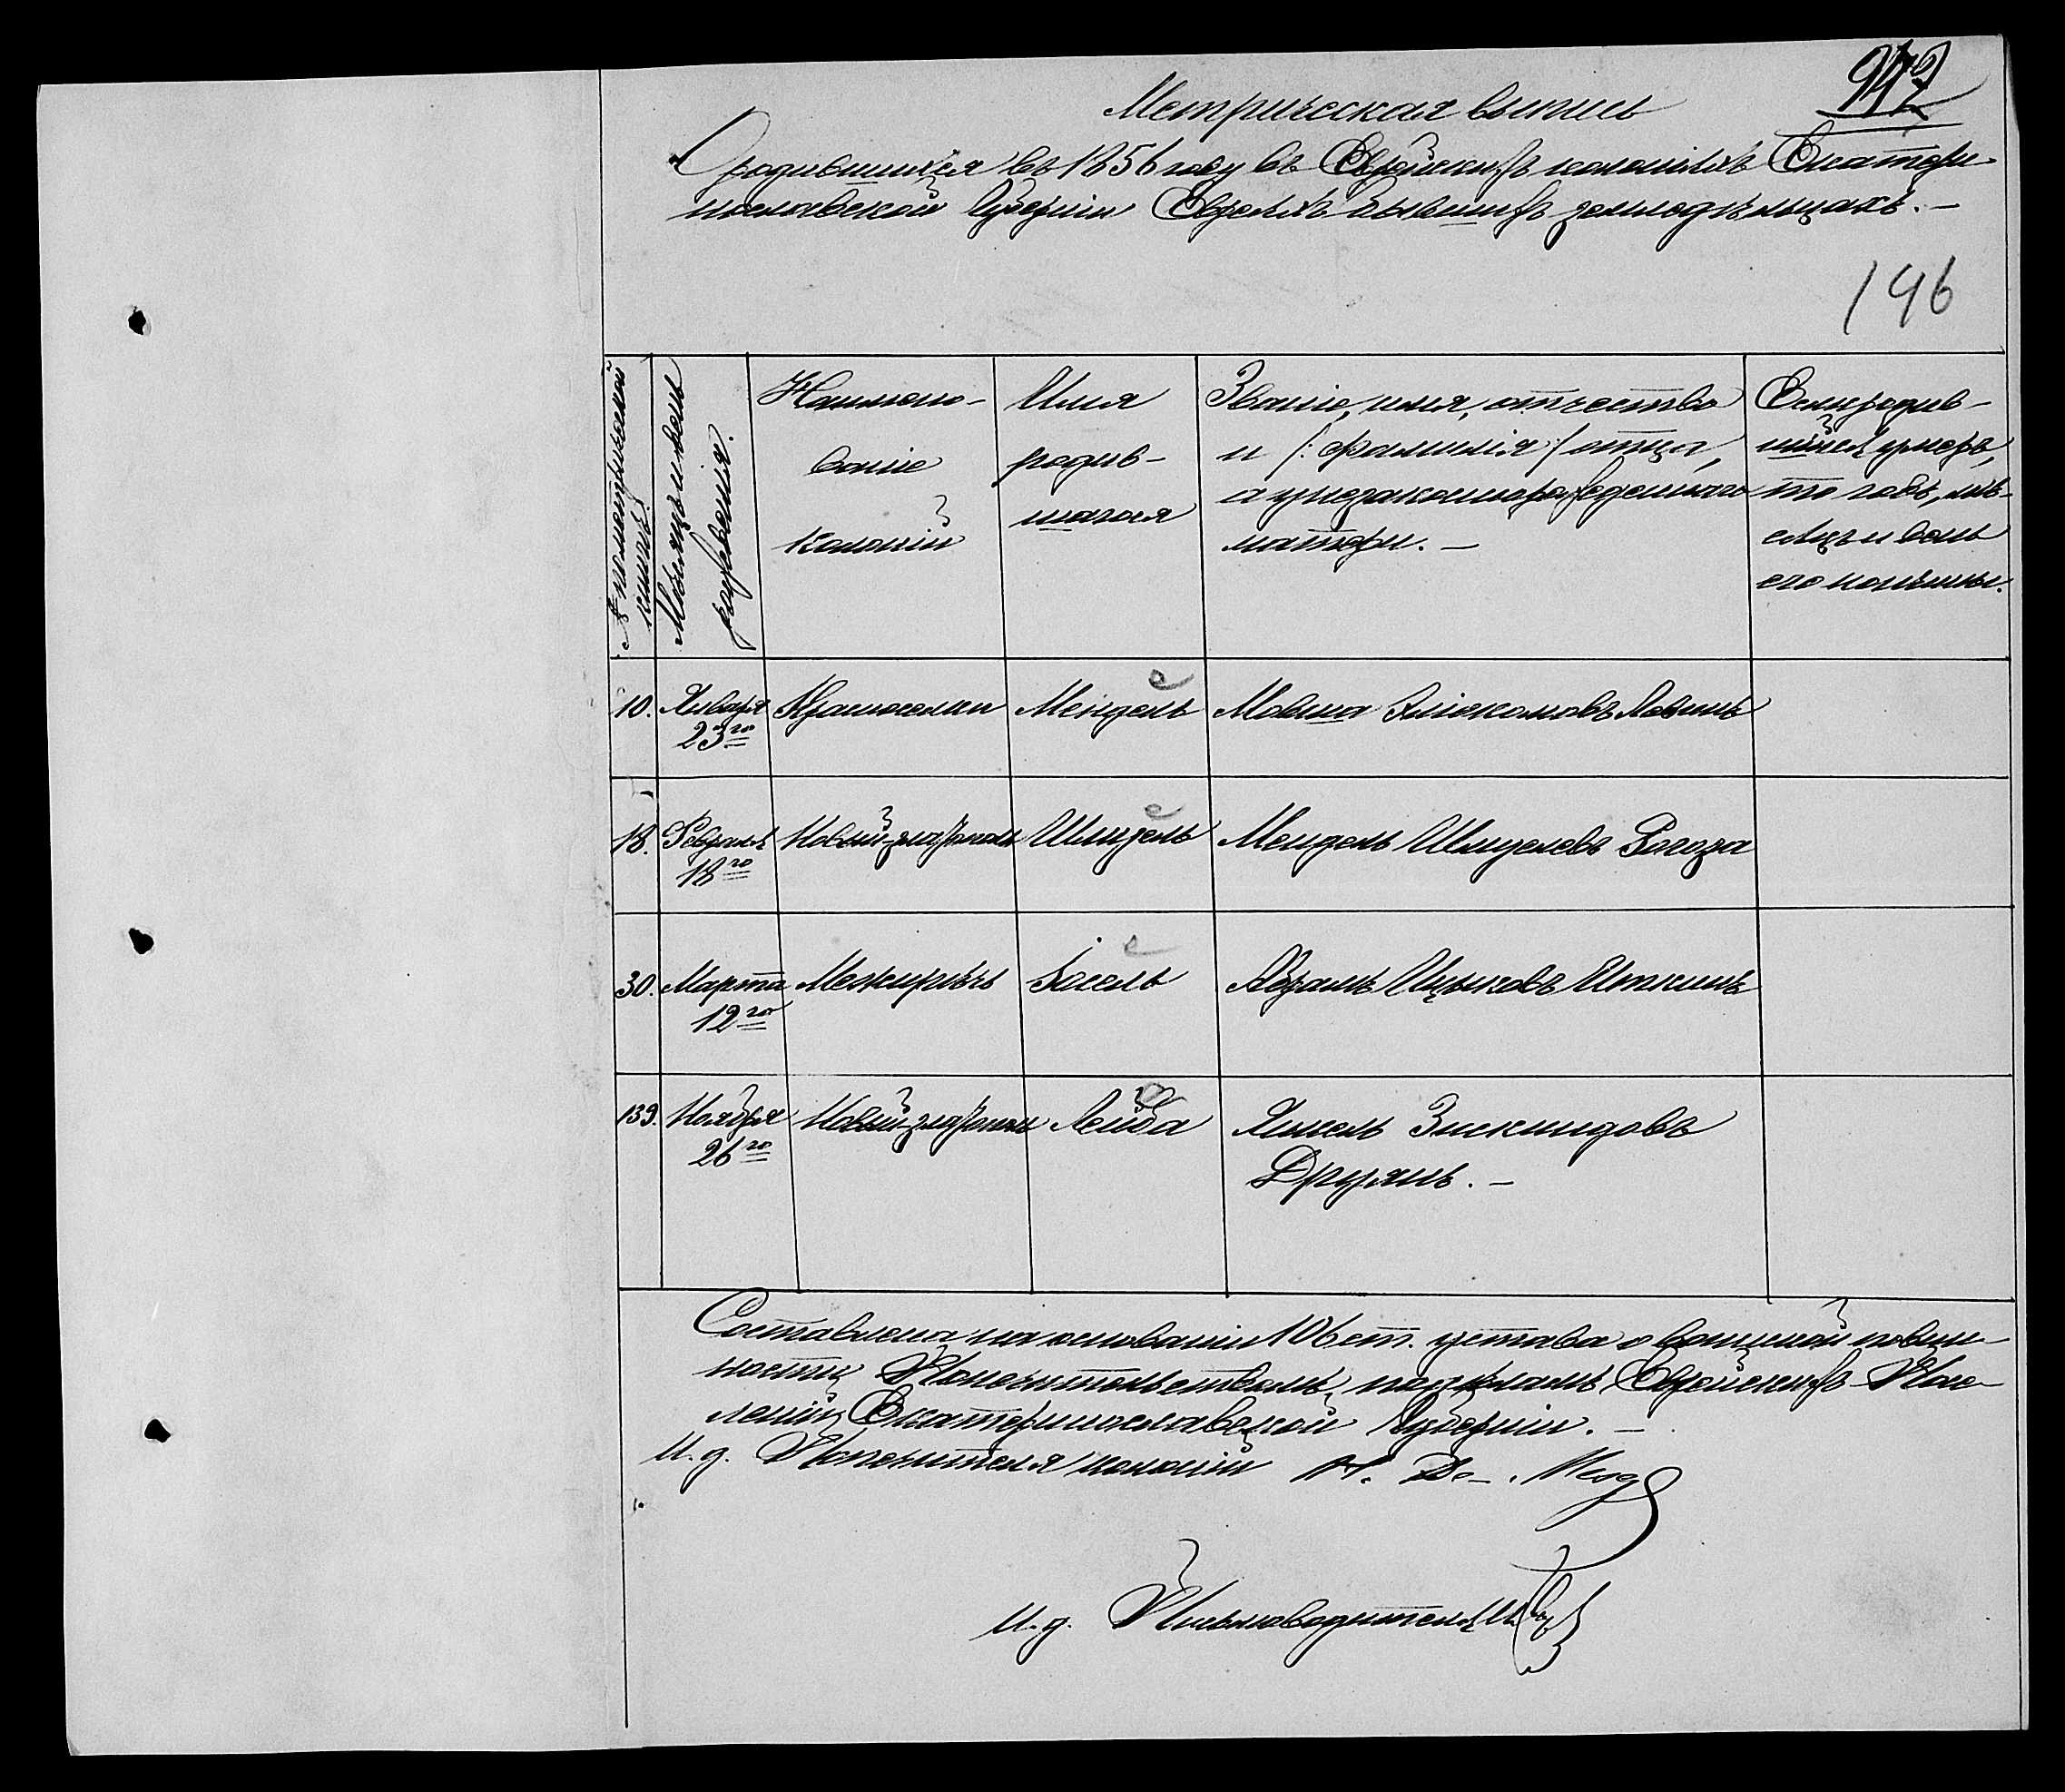 Метрическая выпись
О родившихся въ 1856 году въ Еврейскихъ колоніяхъ Екатери-
нославской Губерніи Евреяхъ бывшихъ земледѣльцахъ. —
196
№ по метрической книгѣ.
Мѣсяцъ и день рожденія.
Наимено-
ваніе
колоній
Имя
родив-
шагося
Званіе, имя, отчество
и /: фамилія :/ отца,
а у незаконнорожденнаго
матери. —
Если родив-
шійся умеръ,
то годъ, мѣ-
сяцъ и день
его кончины.
10. Января Красноселки Мендель Мовша Левинъ
23го
18. Февраля Новый-Златополь Шмуель Мендель Шмуелевъ Рогоза
18го
30. Марта Межиричь Іосель Абрамъ Ицьковъ Иткинъ
12го
139. Ноября Новый-Златополь Лейба Янкель Зискиндовъ
26го Друянъ. —
Составлена на основаніи 106 ст. устава о воинской повин-
ности Попечительствомъ надъ Еврейскихъ Посе-
леній Екатеринославской Губерніи. —
И. д. Попечителя колоній
И. д. Письмоводителя